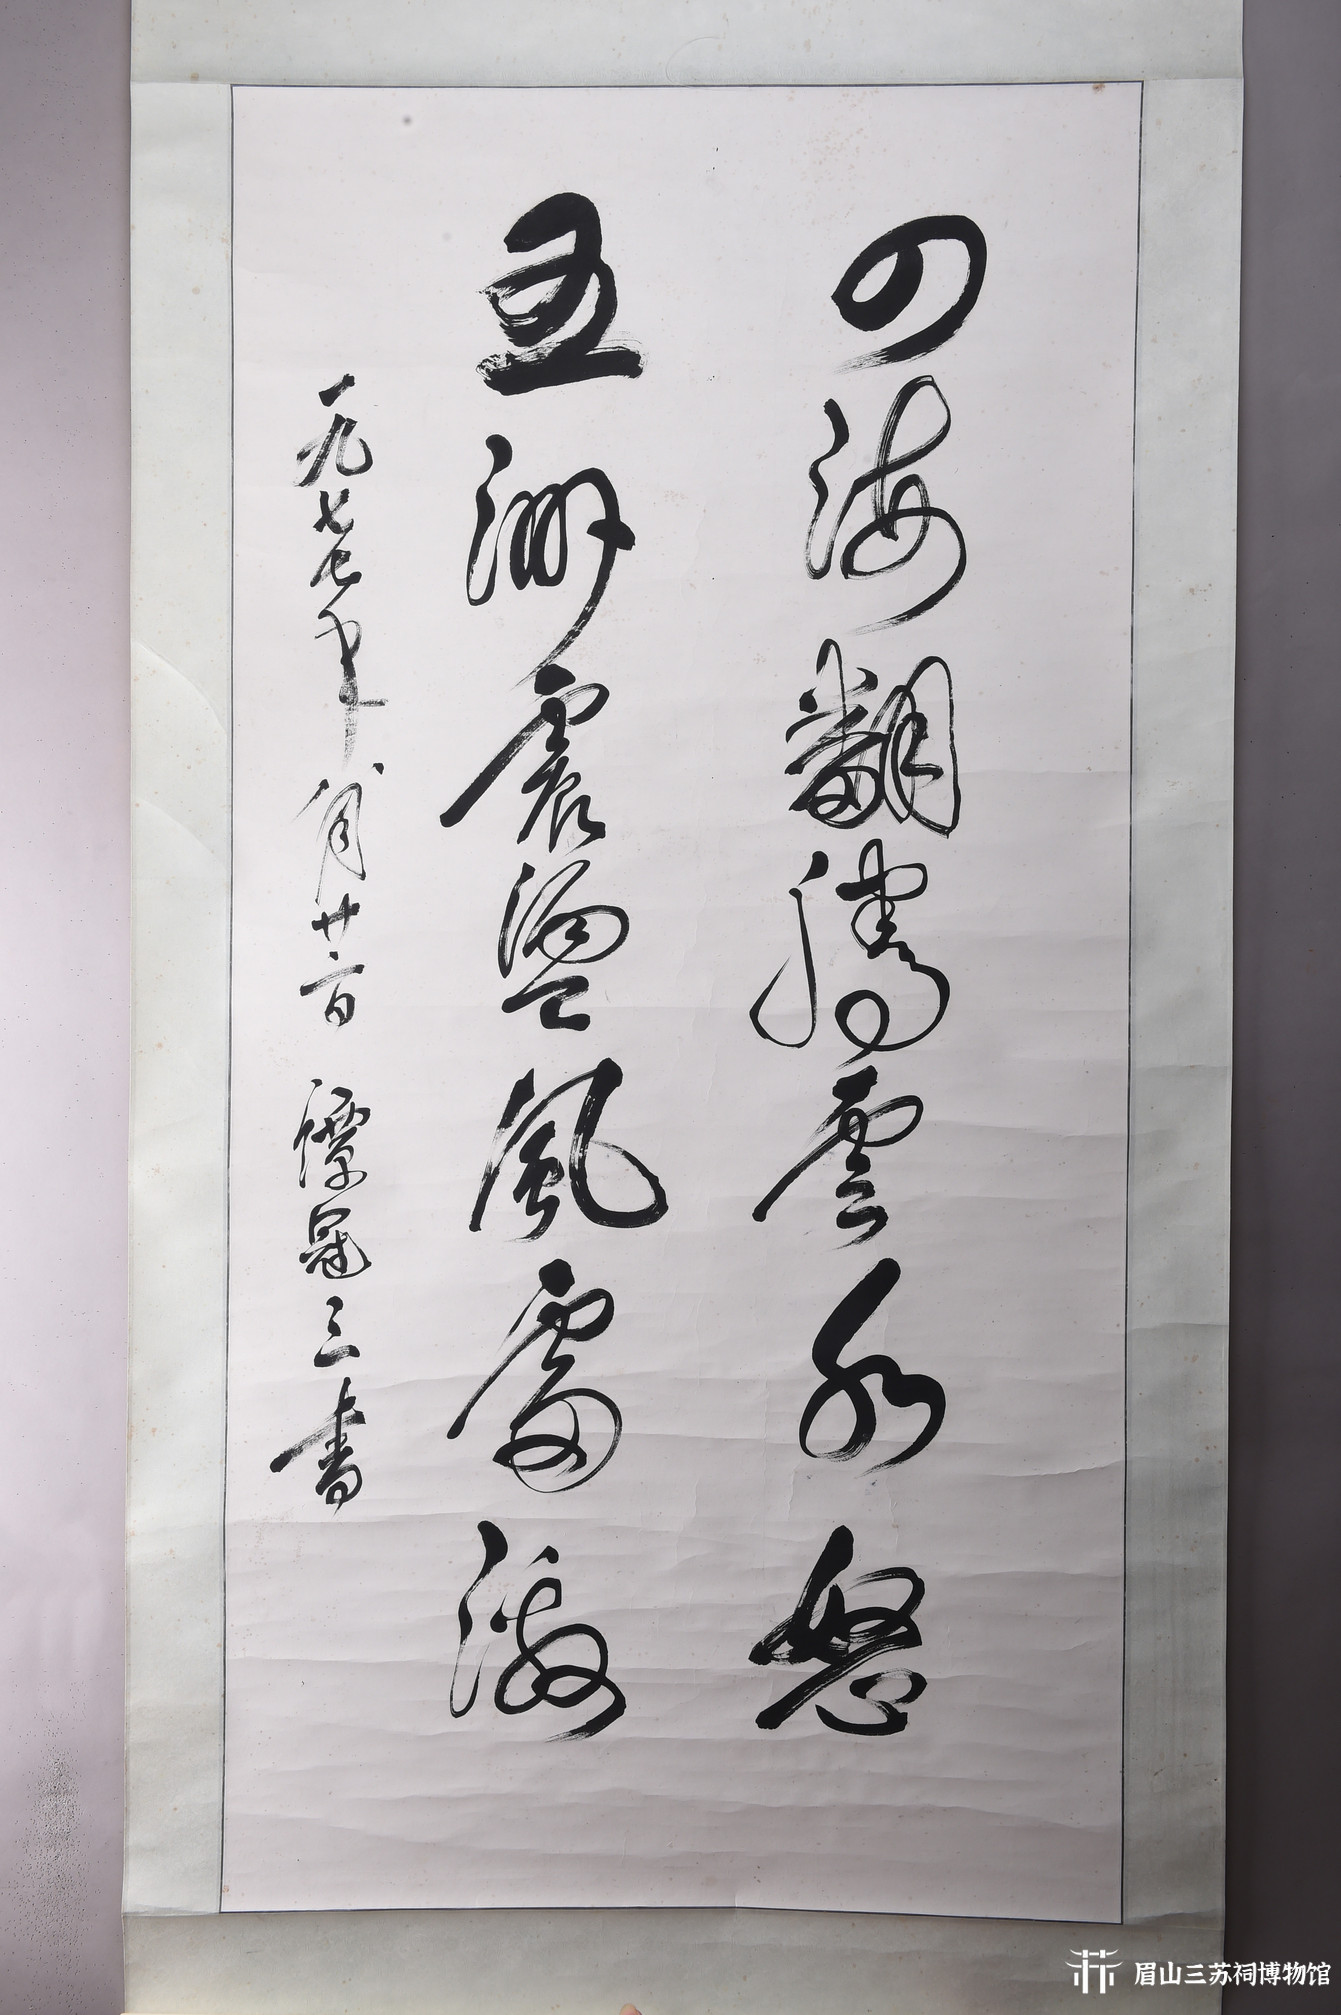 四海翻腾雲水怒
五洲震盪風雷激
一九七七年八月廿六日 譚冠三書
眉山三苏祠博物馆